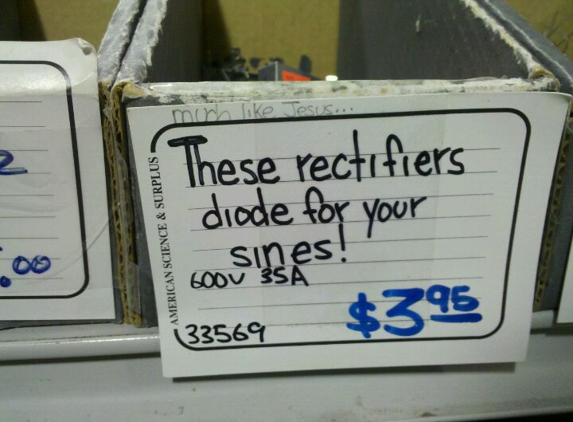 much like Jesus...
These rectifiers
diode for your
sines!
600V 35A
$3.95
33569
AMERICAN SCIENCE & SURPLUS
2
.00